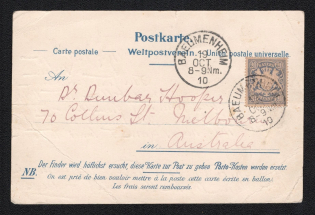 Postkarte
Carte postale Weltpostverein. Union postale universelle.
BAEUMENHEIM
19
OCT
8-9Nm.
10
An
Dr Dunbar Hooker
70 Collins St.
in Australia
Der Finder wird höflichst ersucht, diese Karte zur Post zu geben. Porto-Kosten werden ersetzt
NB. On est prié de bien vouloir mettre à la poste cette carte écrite en ballon;
les frais seront remboursés